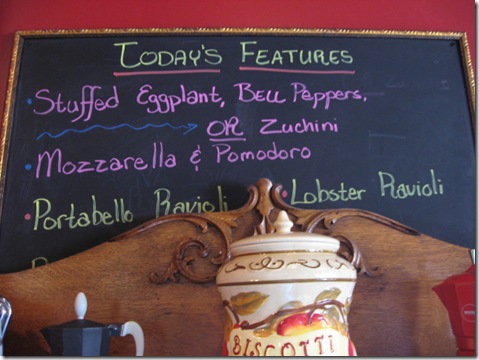 Today's Features
• Stuffed Eggplant, Bell Peppers,
OR Zuchini
• Mozzarella & Pomodoro
• Portabello Ravioli • Lobster Ravioli
BISCOTTI